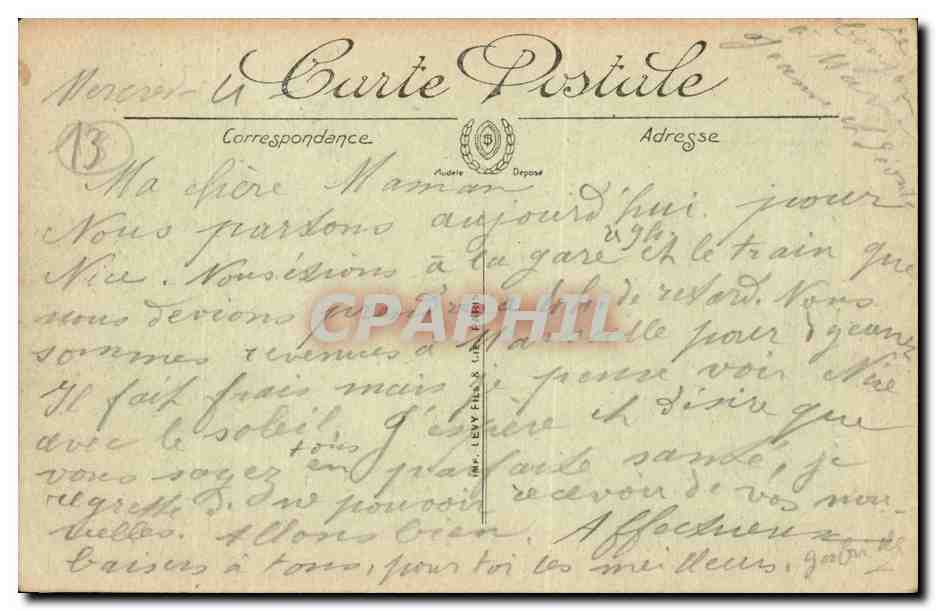 Carte Postale
Mercredi 4
13
Correspondance
Adresse
Modèle Déposé
Ma chère Maman
Nous partons aujourd'hui pour
Nice. Nous étions à la gare à 9h. et le train que
nous devions prendre a de retard. Nous
sommes revenues à Marseille pour
Il fait frais mais je pense voir Nice
avec le soleil. J'espère et désire que
vous soyez tous en parfaite santé, je
regrette de ne pouvoir recevoir de vos nou-
velles. Allons bien. Affectueux
baisers à tous, pour toi les meilleurs.
IMP. LEVY FILS & CIE. PARIS
CPAPHIL